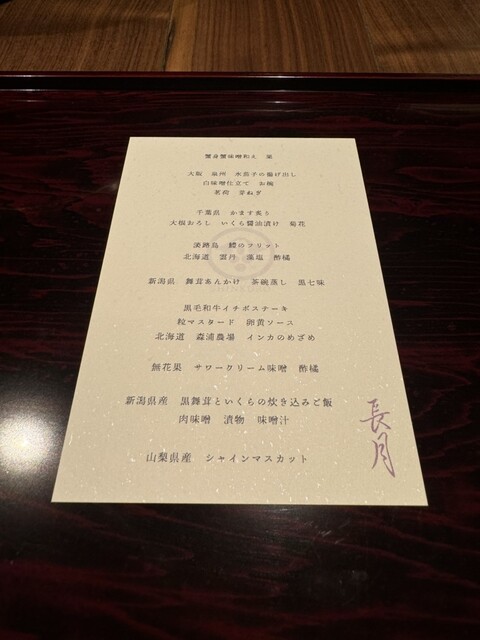 蟹身蟹味噌和え 菊
大阪 泉州 水茄子の揚げ出し
白味噌仕立て お椀
茗荷 芽ねぎ
千葉県 かます炙り
大根おろし いくら醤油漬け 菊花
淡路島 鱧のフリット
北海道 雲丹 藻塩 酢橘
新潟県 舞茸あんかけ 茶碗蒸し 黒七味
黒毛和牛イチボステーキ
粒マスタード 卵黄ソース
北海道 森浦農場 インカのめざめ
無花果 サワークリーム味噌 酢橘
新潟県産 黒舞茸といくらの炊き込みご飯
肉味噌 漬物 味噌汁
山梨県産 シャインマスカット
長月